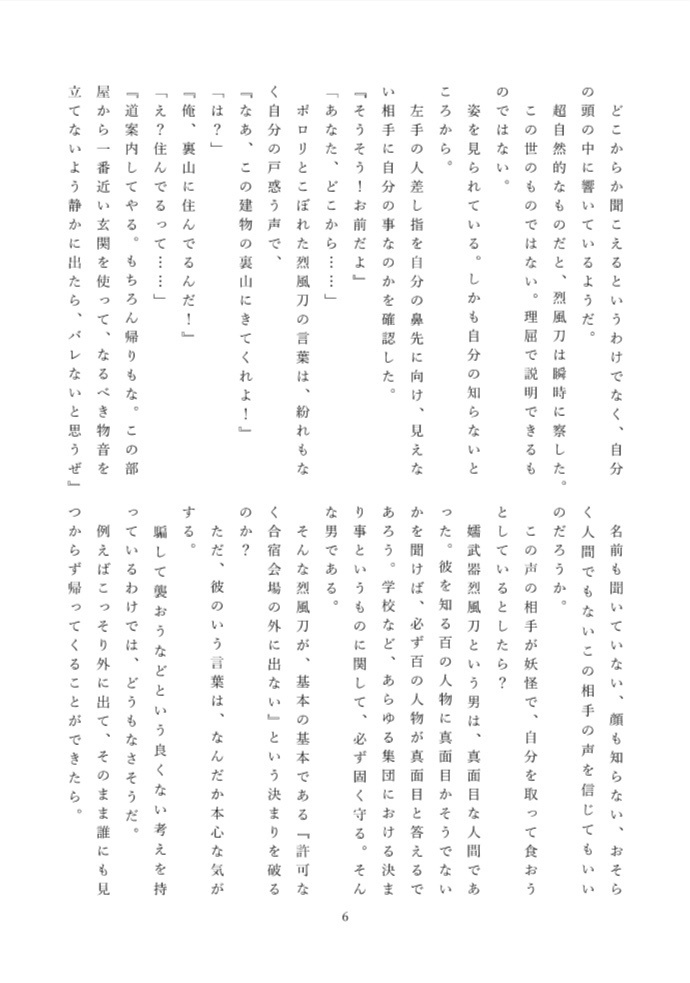 どこからか聞こえるというわけでなく、自分
の頭の中に響いているようだ。
超自然的なものだと、烈風刀は瞬時に察した。
この世のものではない。理屈で説明できるも
のではない。
姿を見られている。しかも自分の知らないと
ころから。
左手の人差し指を自分の鼻先に向け、見えな
い相手に自分の事なのかを確認した。
『そうそう！お前だよ』
「あなた、どこから……」
ポロリとこぼれた烈風刀の言葉は、紛れもな
く自分の戸惑う声で、
『なあ、この建物の裏山にきてくれよ！』
「は？」
『俺、裏山に住んでるんだ！』
「え？住んでるって……」
『道案内してやる。もちろん帰りもな。この部
屋から一番近い玄関を使って、なるべき物音を
立てないよう静かに出たら、バレないと思うぜ』
名前も聞いていない、顔も知らない、おそら
く人間でもないこの相手の声を信じてもいい
のだろうか。
この声の相手が妖怪で、自分を取って食おう
としているとしたら？
嬬武器烈風刀という男は、真面目な人間であ
った。彼を知る百の人物に真面目かそうでない
かを聞けば、必ず百の人物が真面目と答えるで
あろう。学校など、あらゆる集団における決ま
り事というものに関して、必ず固く守る。そん
な男である。
そんな烈風刀が、基本の基本である『許可な
く合宿会場の外に出ない』という決まりを破る
のか？
ただ、彼のいう言葉は、なんだか本心な気が
する。
騙して襲おうなどという良くない考えを持
っているわけでは、どうもなさそうだ。
例えばこっそり外に出て、そのまま誰にも見
つからず帰ってくることができたら。
6